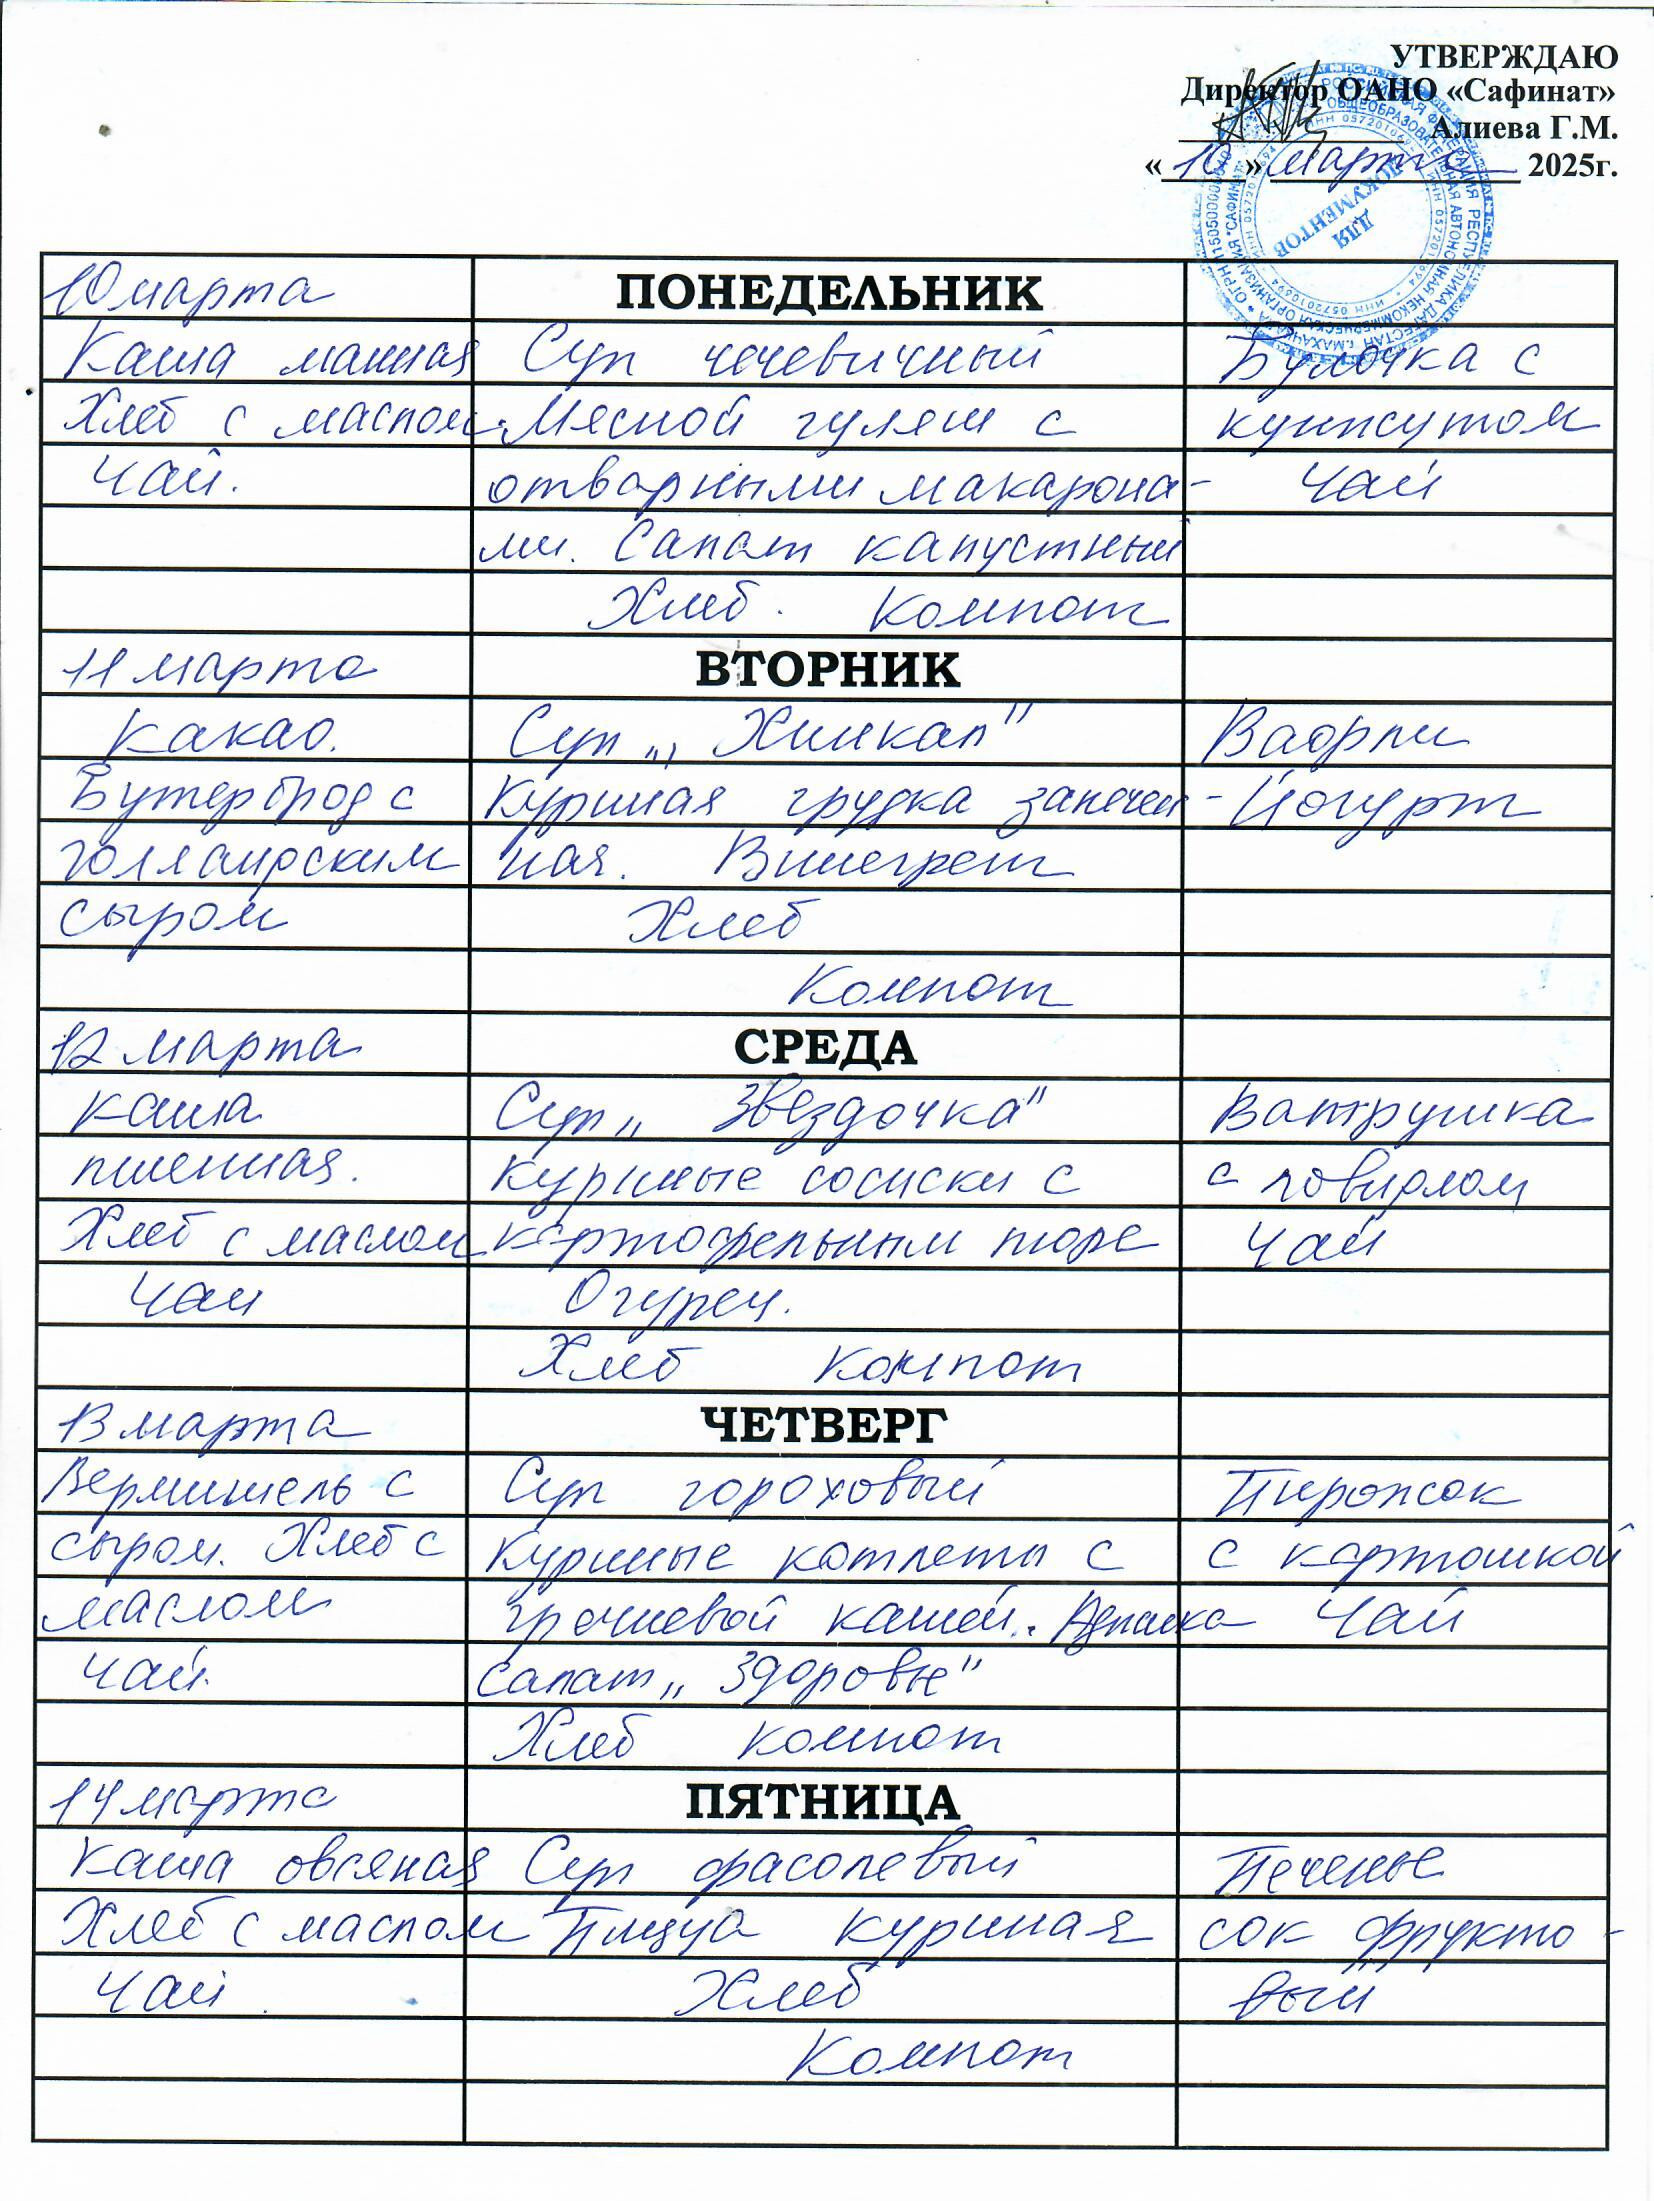 УТВЕРЖДАЮ
Директор ОАНО «Сафинат»
Алиева Г.М.
«10» марта 2025г.
ДЛЯ ДОКУМЕНТОВ
10 марта ПОНЕДЕЛЬНИК
Каша манная Суп чечевичный Булочка с
Хлеб с маслом. Мясной гуляш с кунжутом
Чай. отварными макарона- Чай
ми. Салат капустный
Хлеб. Компот
11 марта ВТОРНИК
Какао. Суп „ Хинкал" Вафли
Бутерброд с Куриная грудка запечен- Йогурт
голландским ная. Винегрет
сыром Хлеб
Компот
12 марта СРЕДА
Каша Суп „ Звездочка" Ватрушка
пшенная. Куриные сосиски с с повидлом
Хлеб с маслом картофельным пюре Чай
Чай Огурец.
Хлеб Компот
13 марта ЧЕТВЕРГ
Вермишель с Суп гороховый Пирожок
сыром. Хлеб с Куриные котлеты с с картошкой
маслом гречневой кашей. Чай
Чай. Салат „ Здоровье"
Хлеб компот
14 марта ПЯТНИЦА
Каша овсяная Суп фасолевый Печенье
Хлеб с маслом Пицца куриная сок фрукто-
Чай. Хлеб вый
Компот